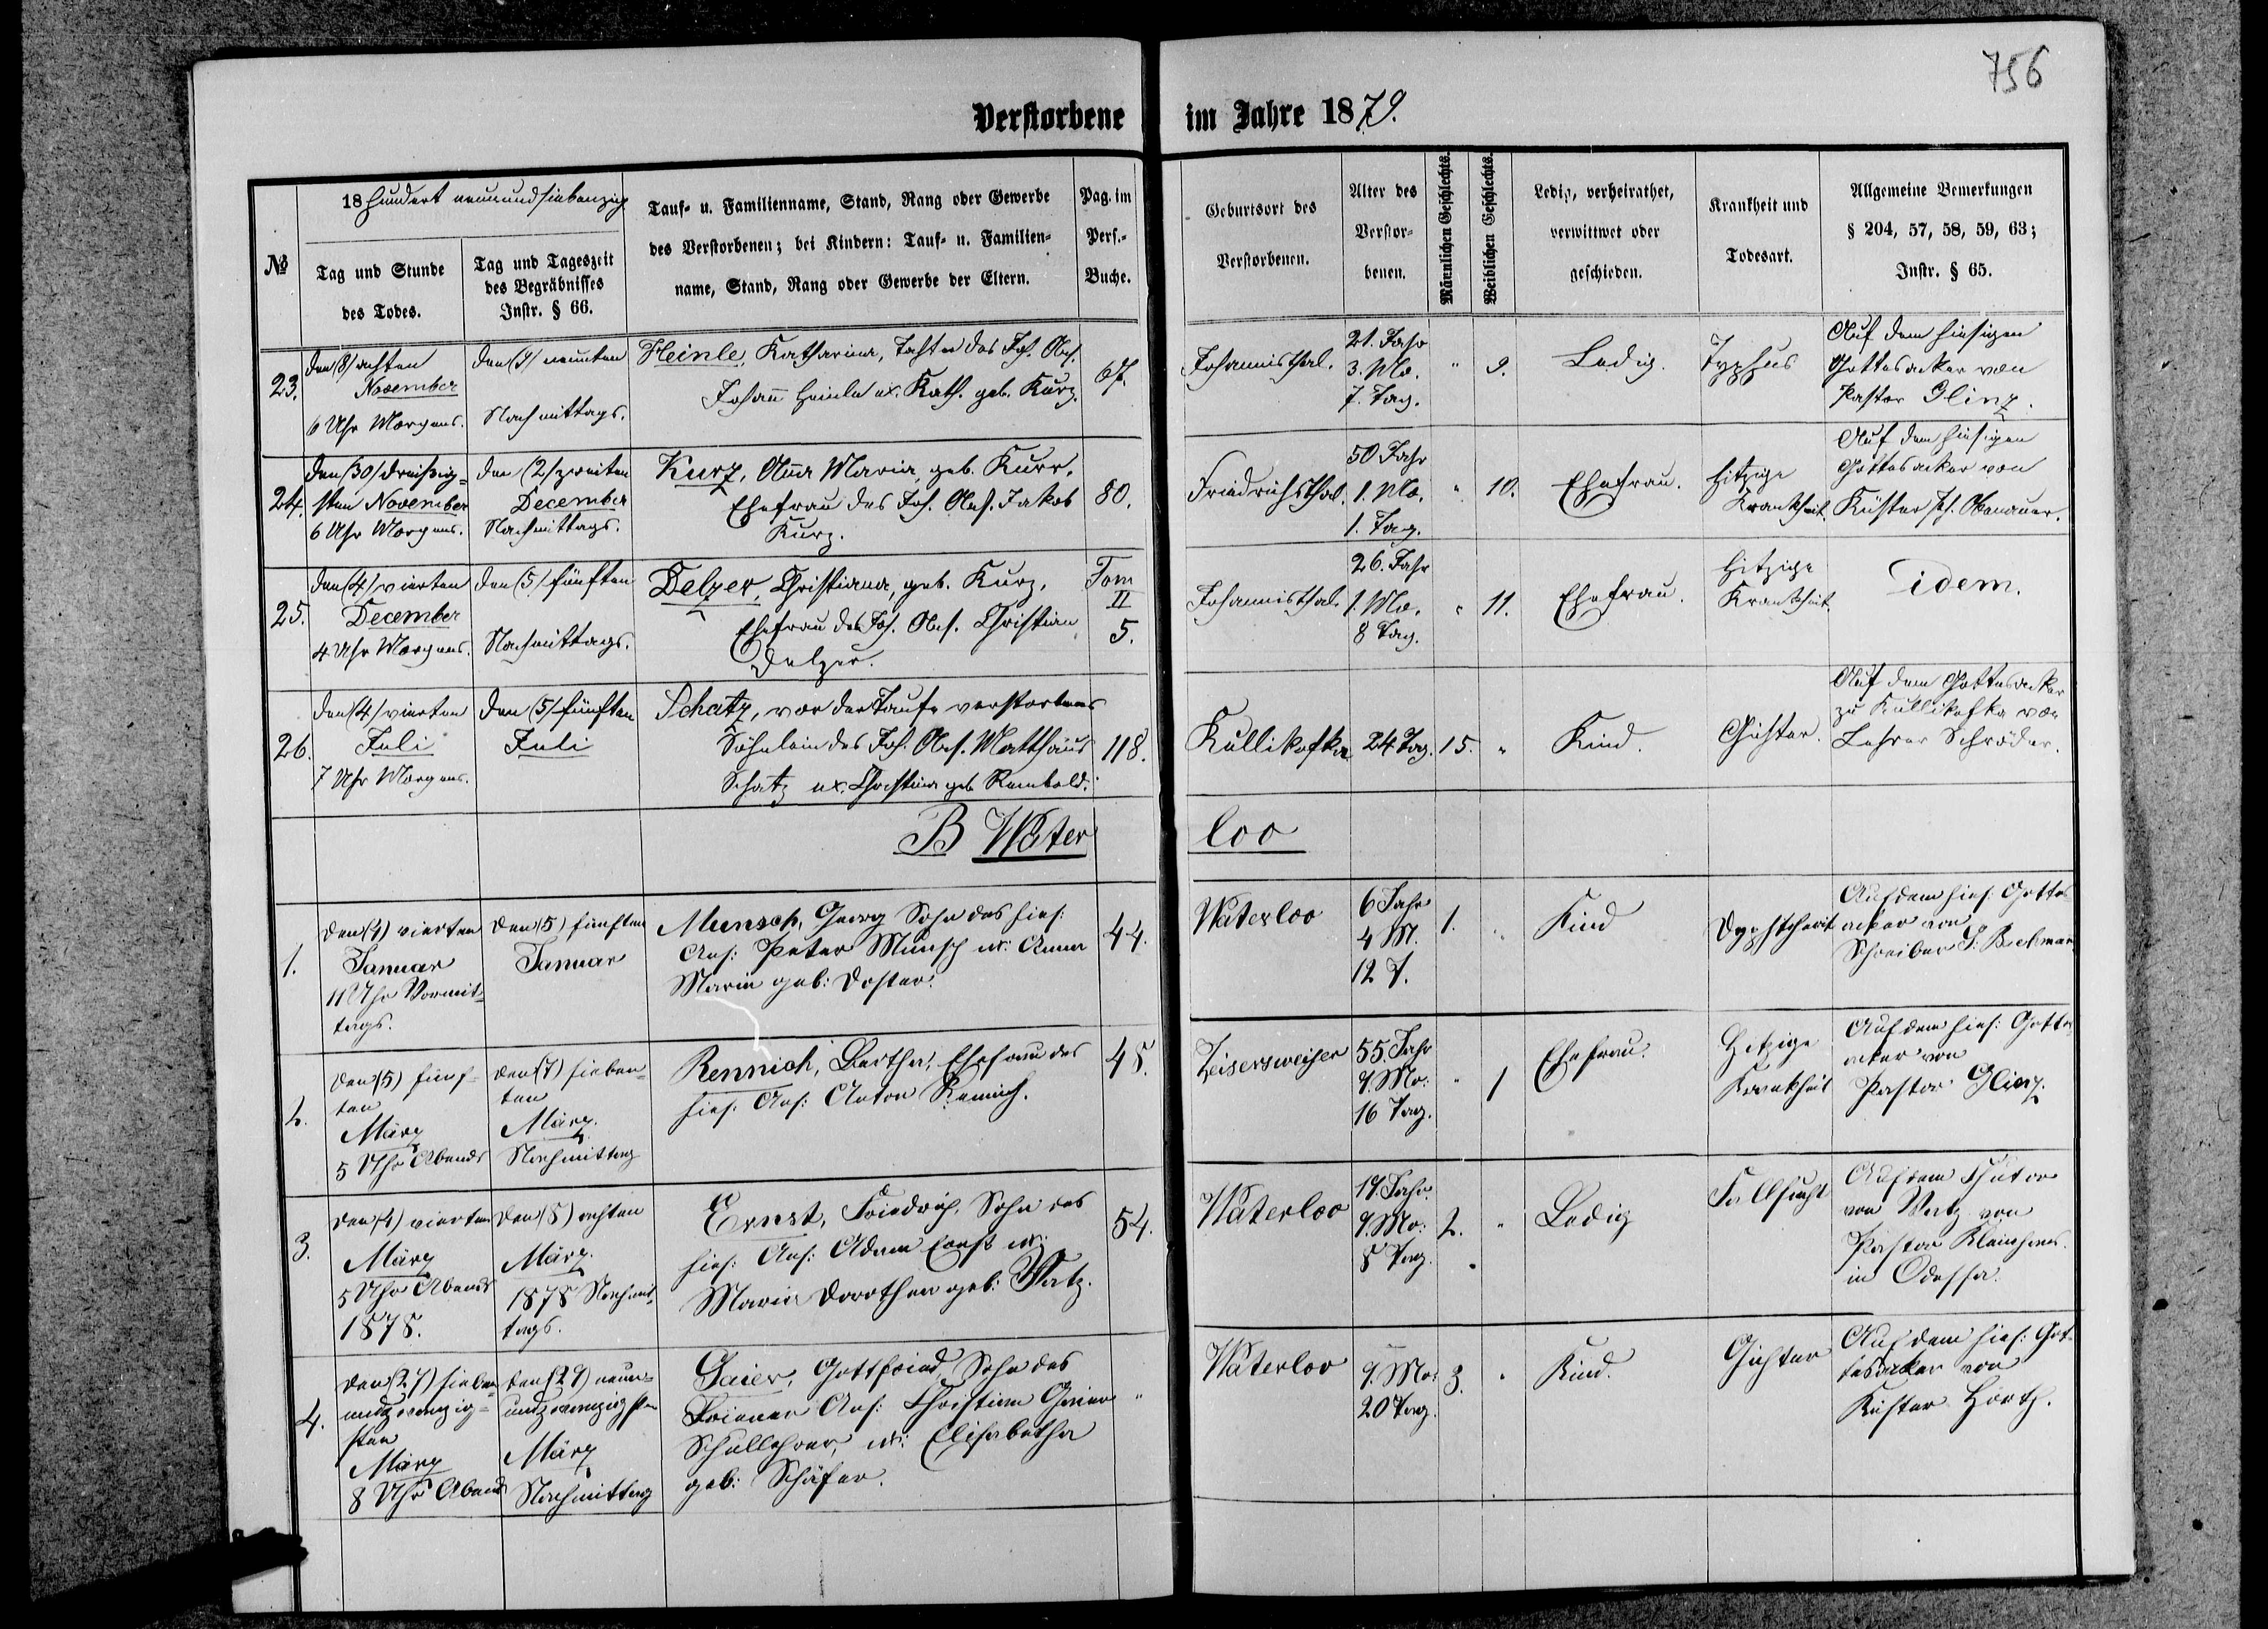 756
Verstorbene im Jahre 1879.
№
18 hundert neunundsiebenzig
Tag und Stunde
des Todes.
Tag und Tageszeit
des Begräbnisses
Instr. § 66.
Tauf- u. Familienname, Stand, Rang oder Gewerbe
des Verstorbenen; bei Kindern: Tauf- u. Familien-
name, Stand, Rang oder Gewerbe der Eltern.
Pag. im
Pers.-
Buche.
Geburtsort des
Verstorbenen.
Alter des
Verstor-
benen.
Männlichen Geschlechts.
Weiblichen Geschlechts.
Ledig, verheirathet,
verwittwet oder
geschieden.
Krankheit und
Todesart.
Allgemeine Bemerkungen
§ 204, 57, 58, 59, 63;
Instr. § 65.
23.
den (8) achten
November
6 Uhr Morgens.
den (9) neunten
Nachmittags.
Heinle, Katharina, Tochter des Joh. Ans.
Johann Heinle ux. Kath. geb. Kurz.
67.
Johannisthal.
21. Jahr
3. Mo.
7. Tag.
" 9.
Ledig.
Typhus
Auf dem hiesigen
Gottesacker von
Pastor Glinz.
24.
den (30) dreißig=
sten November
6 Uhr Morgens.
den (2) zweiten
December
Nachmittags.
Kurz, Anna Maria, geb. Kurr.
Ehefrau des Joh. Ans. Jakob
Kurz.
80.
Friedrichsthal.
50 Jahr
1. Mo.
1. Tag.
" 10.
Ehefrau.
hitzige
Krankheit.
Auf dem hiesigen
Gottesacker von
Küster
25.
den (4) vierten
December
4 Uhr Morgens.
den (5) fünften
Nachmittags.
Delzer, Christiana, geb. Kurz.
Ehefrau des Joh. Ans. Christian
Delzer.
Tom
II
5.
Johannisthal.
26. Jahr
1. Mo.
8 Tag.
" 11.
Ehefrau.
hitzige
Krankheit.
idem.
26.
den (4) vierten
Juli
7 Uhr Morgens.
den (5) fünften
Juli
Schatz, vor der Taufe verstorbenes
Söhnlein des Joh. Ans. Matthäus
Schatz ux. Christina geb. Rembold.
118.
Kullikofka
24 Tag.
15. "
Kind.
Gichter.
Auf dem Gottesacker
zu Kullikofka von
Lehrer Schröder.
B Waterloo
1.
den (4) vierten
Januar
11 Uhr Vormit=
tags.
den (5) fünften
Januar
Munsch, Georg Sohn des hies:
Ans: Peter Munsch ux: Anna
Maria geb: Doster.
44.
Waterloo
6 Jahr
4 M.
12 T.
1. "
Kind
Auf dem hies: Gottes
acker von
Schreiber
2.
den (5) fünf=
ten
März
5 Uhr Abends
den (7) sieben=
ten
März.
Nachmittag
Rennich, Bertha, Ehefrau des
hies. Ans: Anton Rennich.
48.
Zeisersweiher
55. Jahr
9. Mo:
16 Tag.
" 1
Ehefrau.
Hitzige
Krankheit
Auf dem hies: Gottes
acker von
Pastor Glinz.
3.
den (4) vierten
März
5 Uhr Abends
1878.
den (8) achten
März.
1878 Nachmit=
tags.
Ernst, Friedrich, Sohn des
hies: Ans: Adam Ernst ux:
Maria Dorothea geb: Watz.
54.
Waterloo
19. Jahr
9. Mo:
8 Tag.
2. "
Ledig
Fallsucht
Auf dem Chutor
von Watz von
Pastor
in Odessa.
4.
den (27) sieben
undzwanzig=
sten
März
8 Uhr Abends
den (29) neun=
undzwanzigsten
März
Nachmittag
Gaier, Gottfried, Sohn des
Ans: Christian Gaier
Schullehrer, ux: Elisabetha
geb: Schäfer.
"
Waterloo
9. Mo:
20 Tag.
3. "
Kind.
Gichter
Auf dem hies: Got=
tesacker von
Küster Horth.